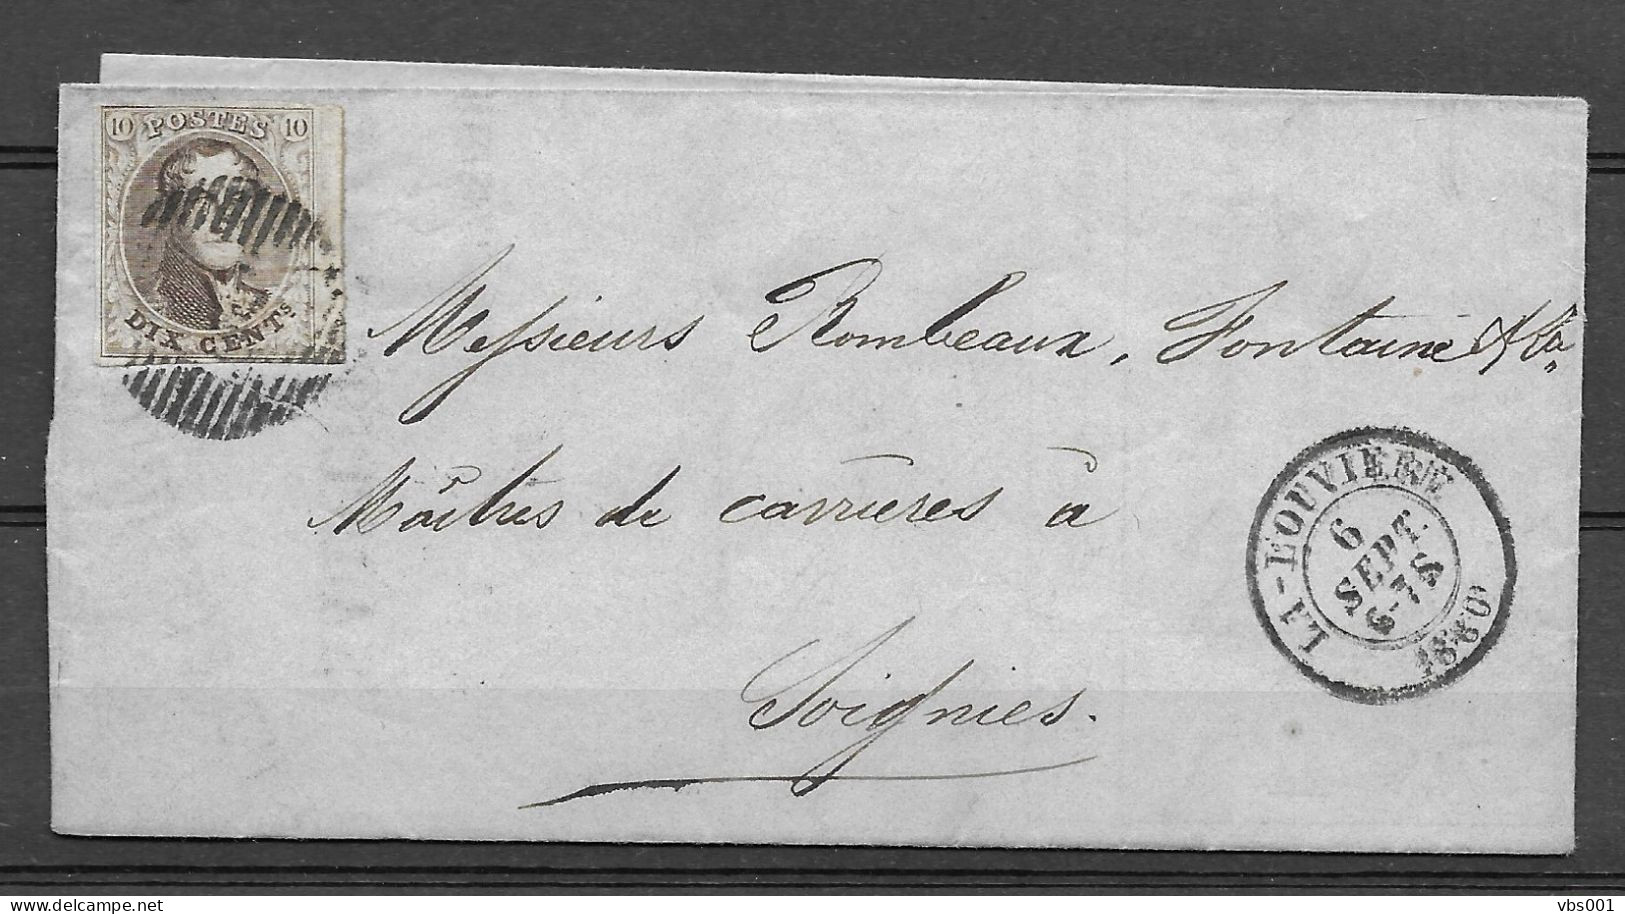 10 POSTES 10
DIX CENTs.
Messieurs Rombeaux, Fontaine & Cie
Maîtres de carrières à
Soignies.
LA-LOUVIÈRE
6
SEPT.
6-7S
1860
delcampe.net
vbs001